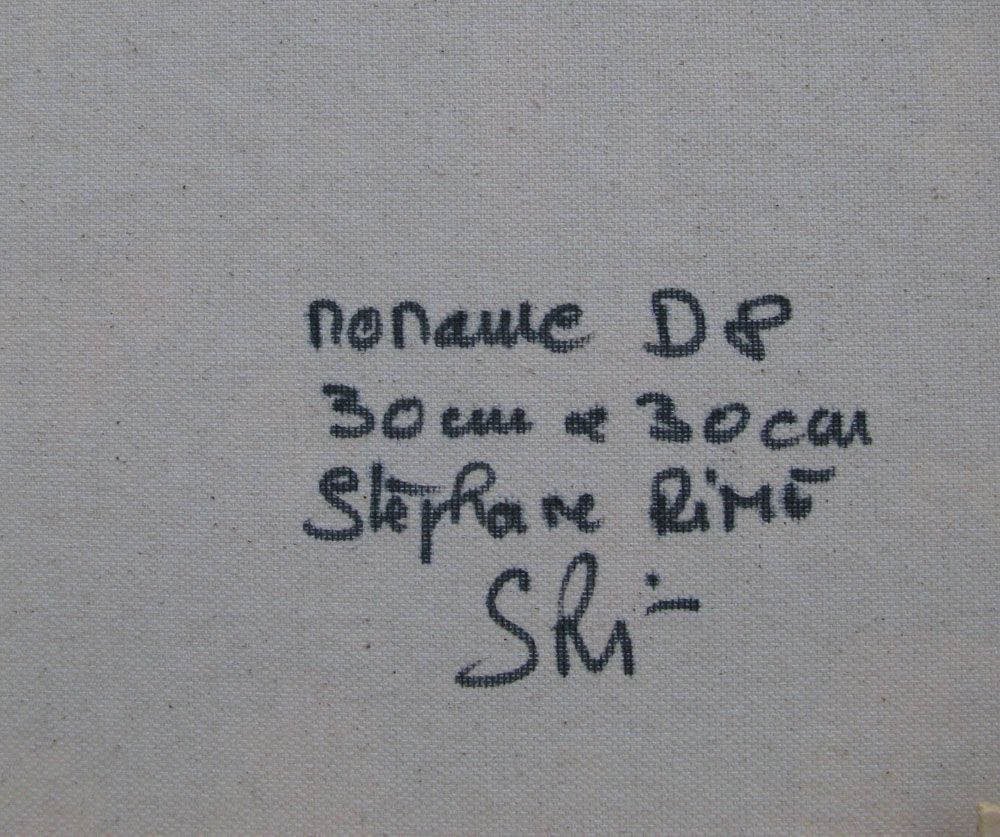 noname D8
30cm x 30cm
Stéphane Rimé
SRi